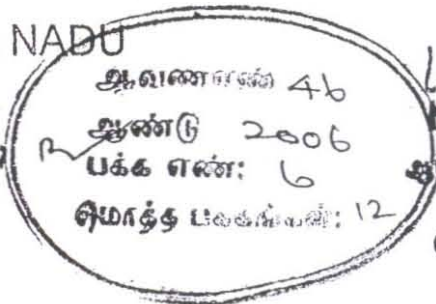 NADU
ஆவணஎண் 46
ஆண்டு 2006
பக்க எண்: 6
மொத்த பக்கங்கள்: 12